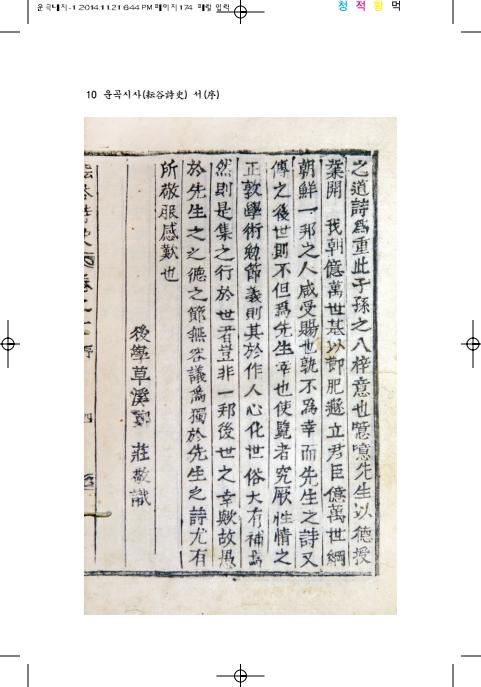 운곡내지-1 2014.11.21 6:44 PM 페이지174 매킬 입력
청 적 황 먹
10 운곡시사(耘谷詩史) 서(序)
之道詩爲重此子孫之入梓意也噫噫先生以德授
業開 我朝億萬世基以鄭肥遯立君臣億萬世綱
朝鮮一邦之人咸受賜也孰不爲幸而先生之詩又
傳之後世則不但爲先生幸也使覽者究厥性情之
正敦學術勉節義則其於作人心化世俗大有補焉
然則是集之行於世者豈非一邦後世之幸歟故愚
於先生之之德之節無容議爲獨於先生之詩尤有
所敬服感歎也
後學草溪鄭 莊敬識
序 四